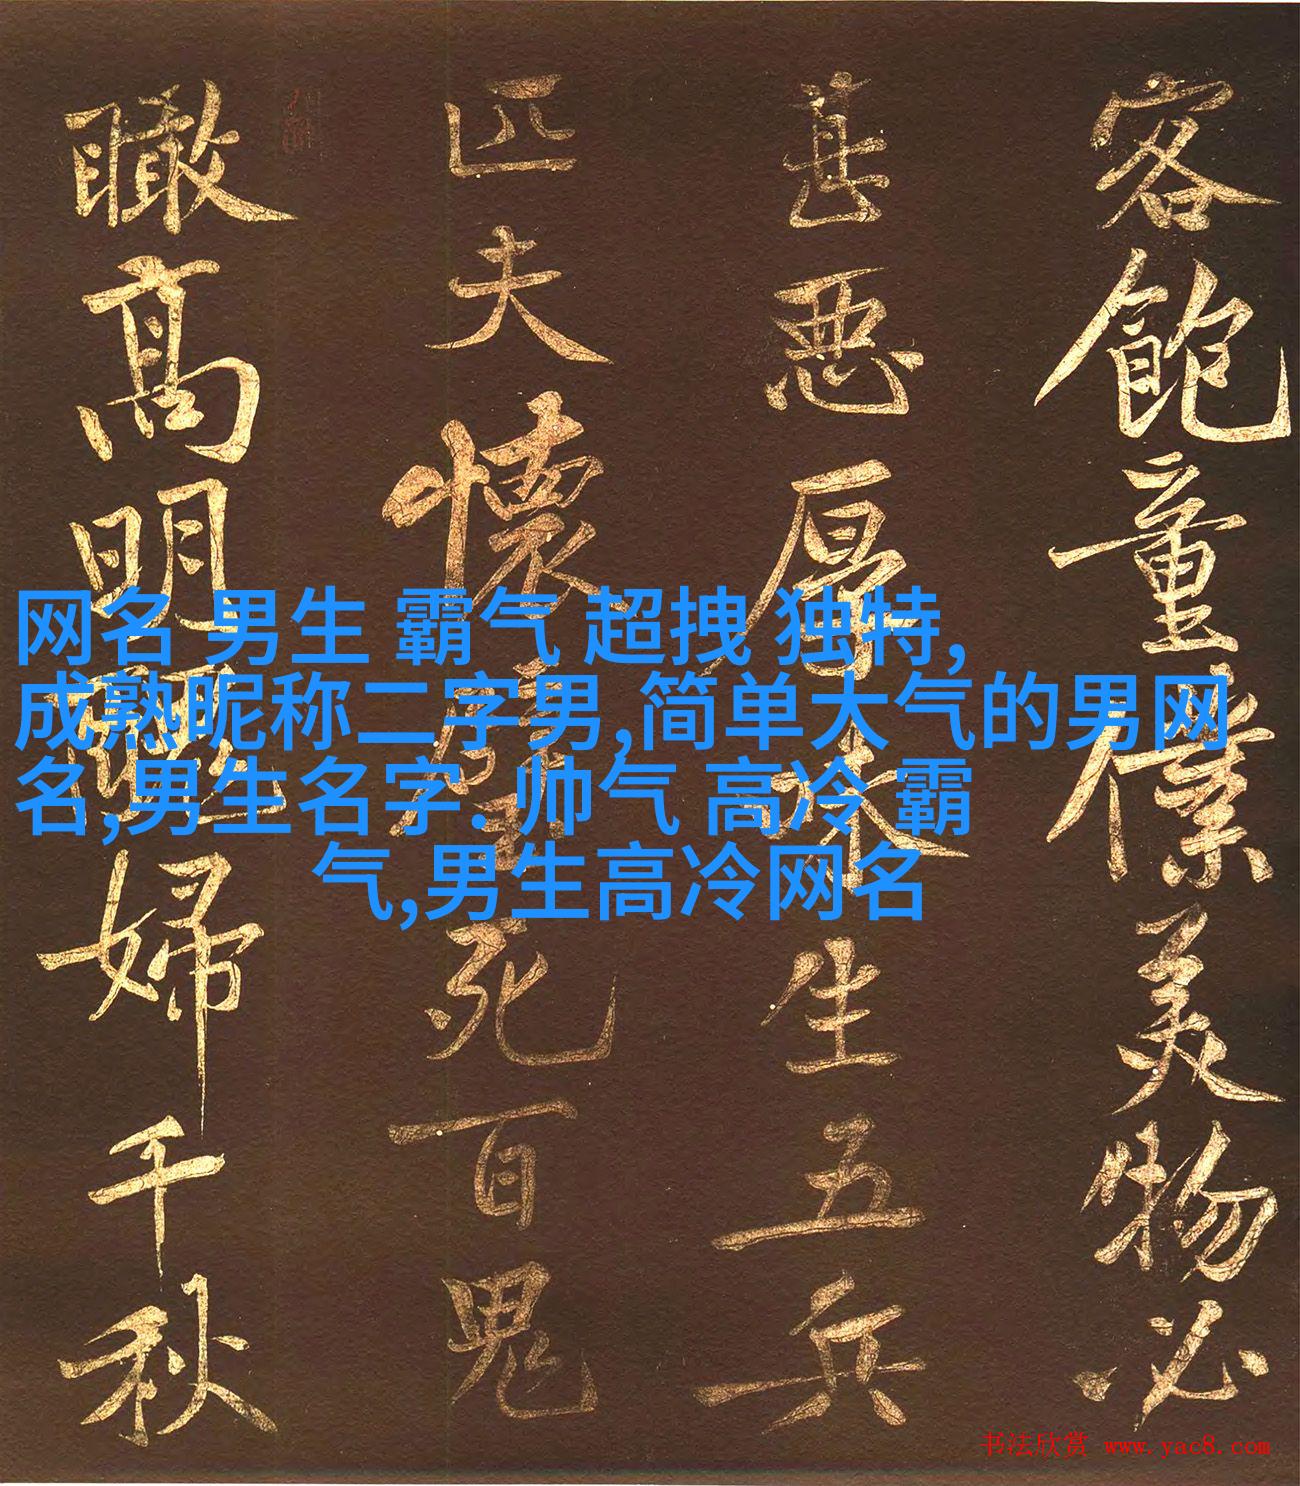 客飽童僕美物必
甚惡厚味生五兵
匹夫懷璧死百鬼
瞰高明婦千秋
网名 男生 霸气 超拽 独特,
成熟昵称二字男,简单大气的男网
名,男生名字. 帅气 高冷 霸
气,男生高冷网名
书法欣赏 www.yac8.com